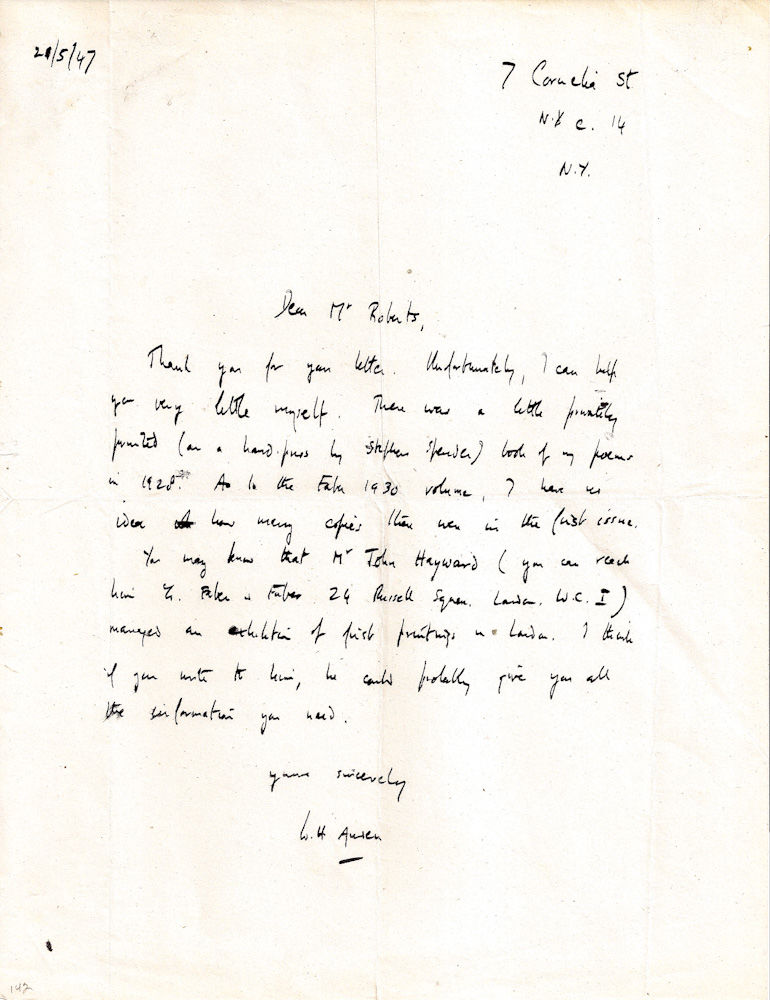 21/5/47
7 Cornelia St
N.Y. C. 14
N.Y.
Dear Mr Roberts,
Thank you for your letter. Unfortunately, I can help
you very little myself. There was a little privately
printed (on a hand-press by Stephen Spender) book of my poems
in 1928. As to the Faber 1930 volume, I have no
idea how many copies there were in the first issue.
You may know that Mr John Hayward (you can reach
him c/o. Faber & Faber 24 Russell Square. London. W.C. I)
managed an exhibition of first printings in London. I think
if you write to him, he could probably give you all
the information you need.
yours sincerely
W.H Auden
142